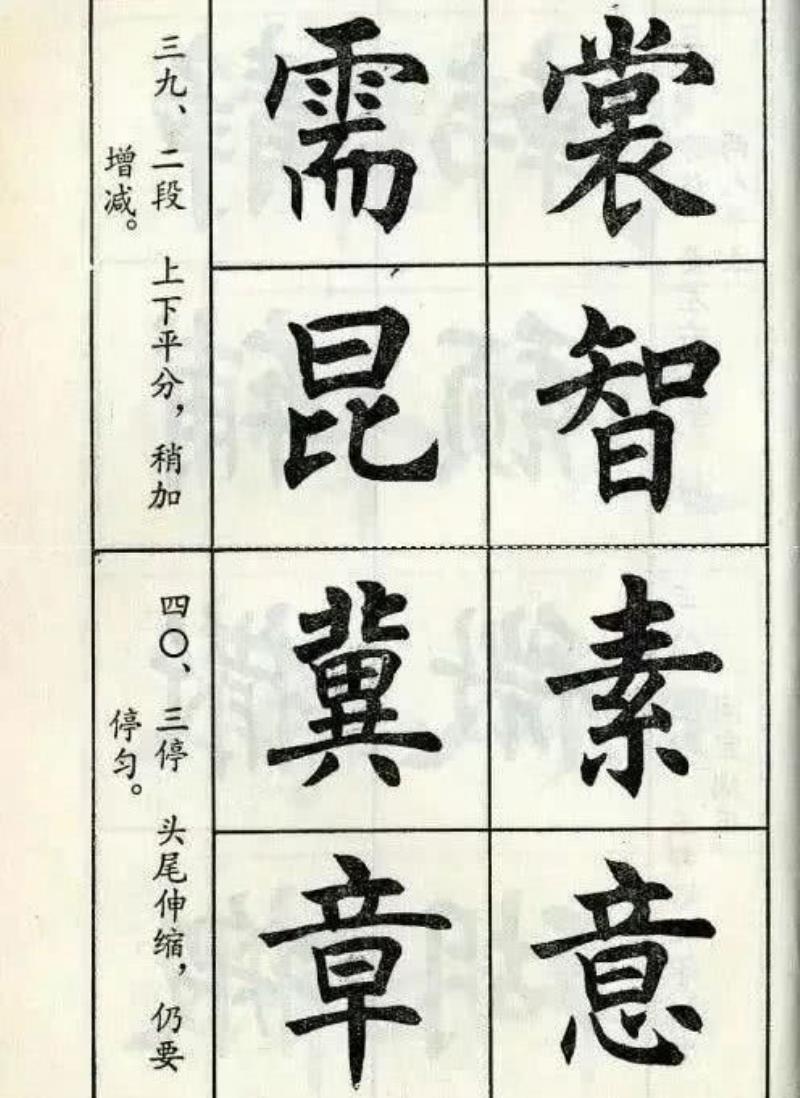 裳 需
智 昆
三九、二段 上下平分，稍加
增减。
素 冀
意 章
四〇、三停 头尾伸缩，仍要
停匀。